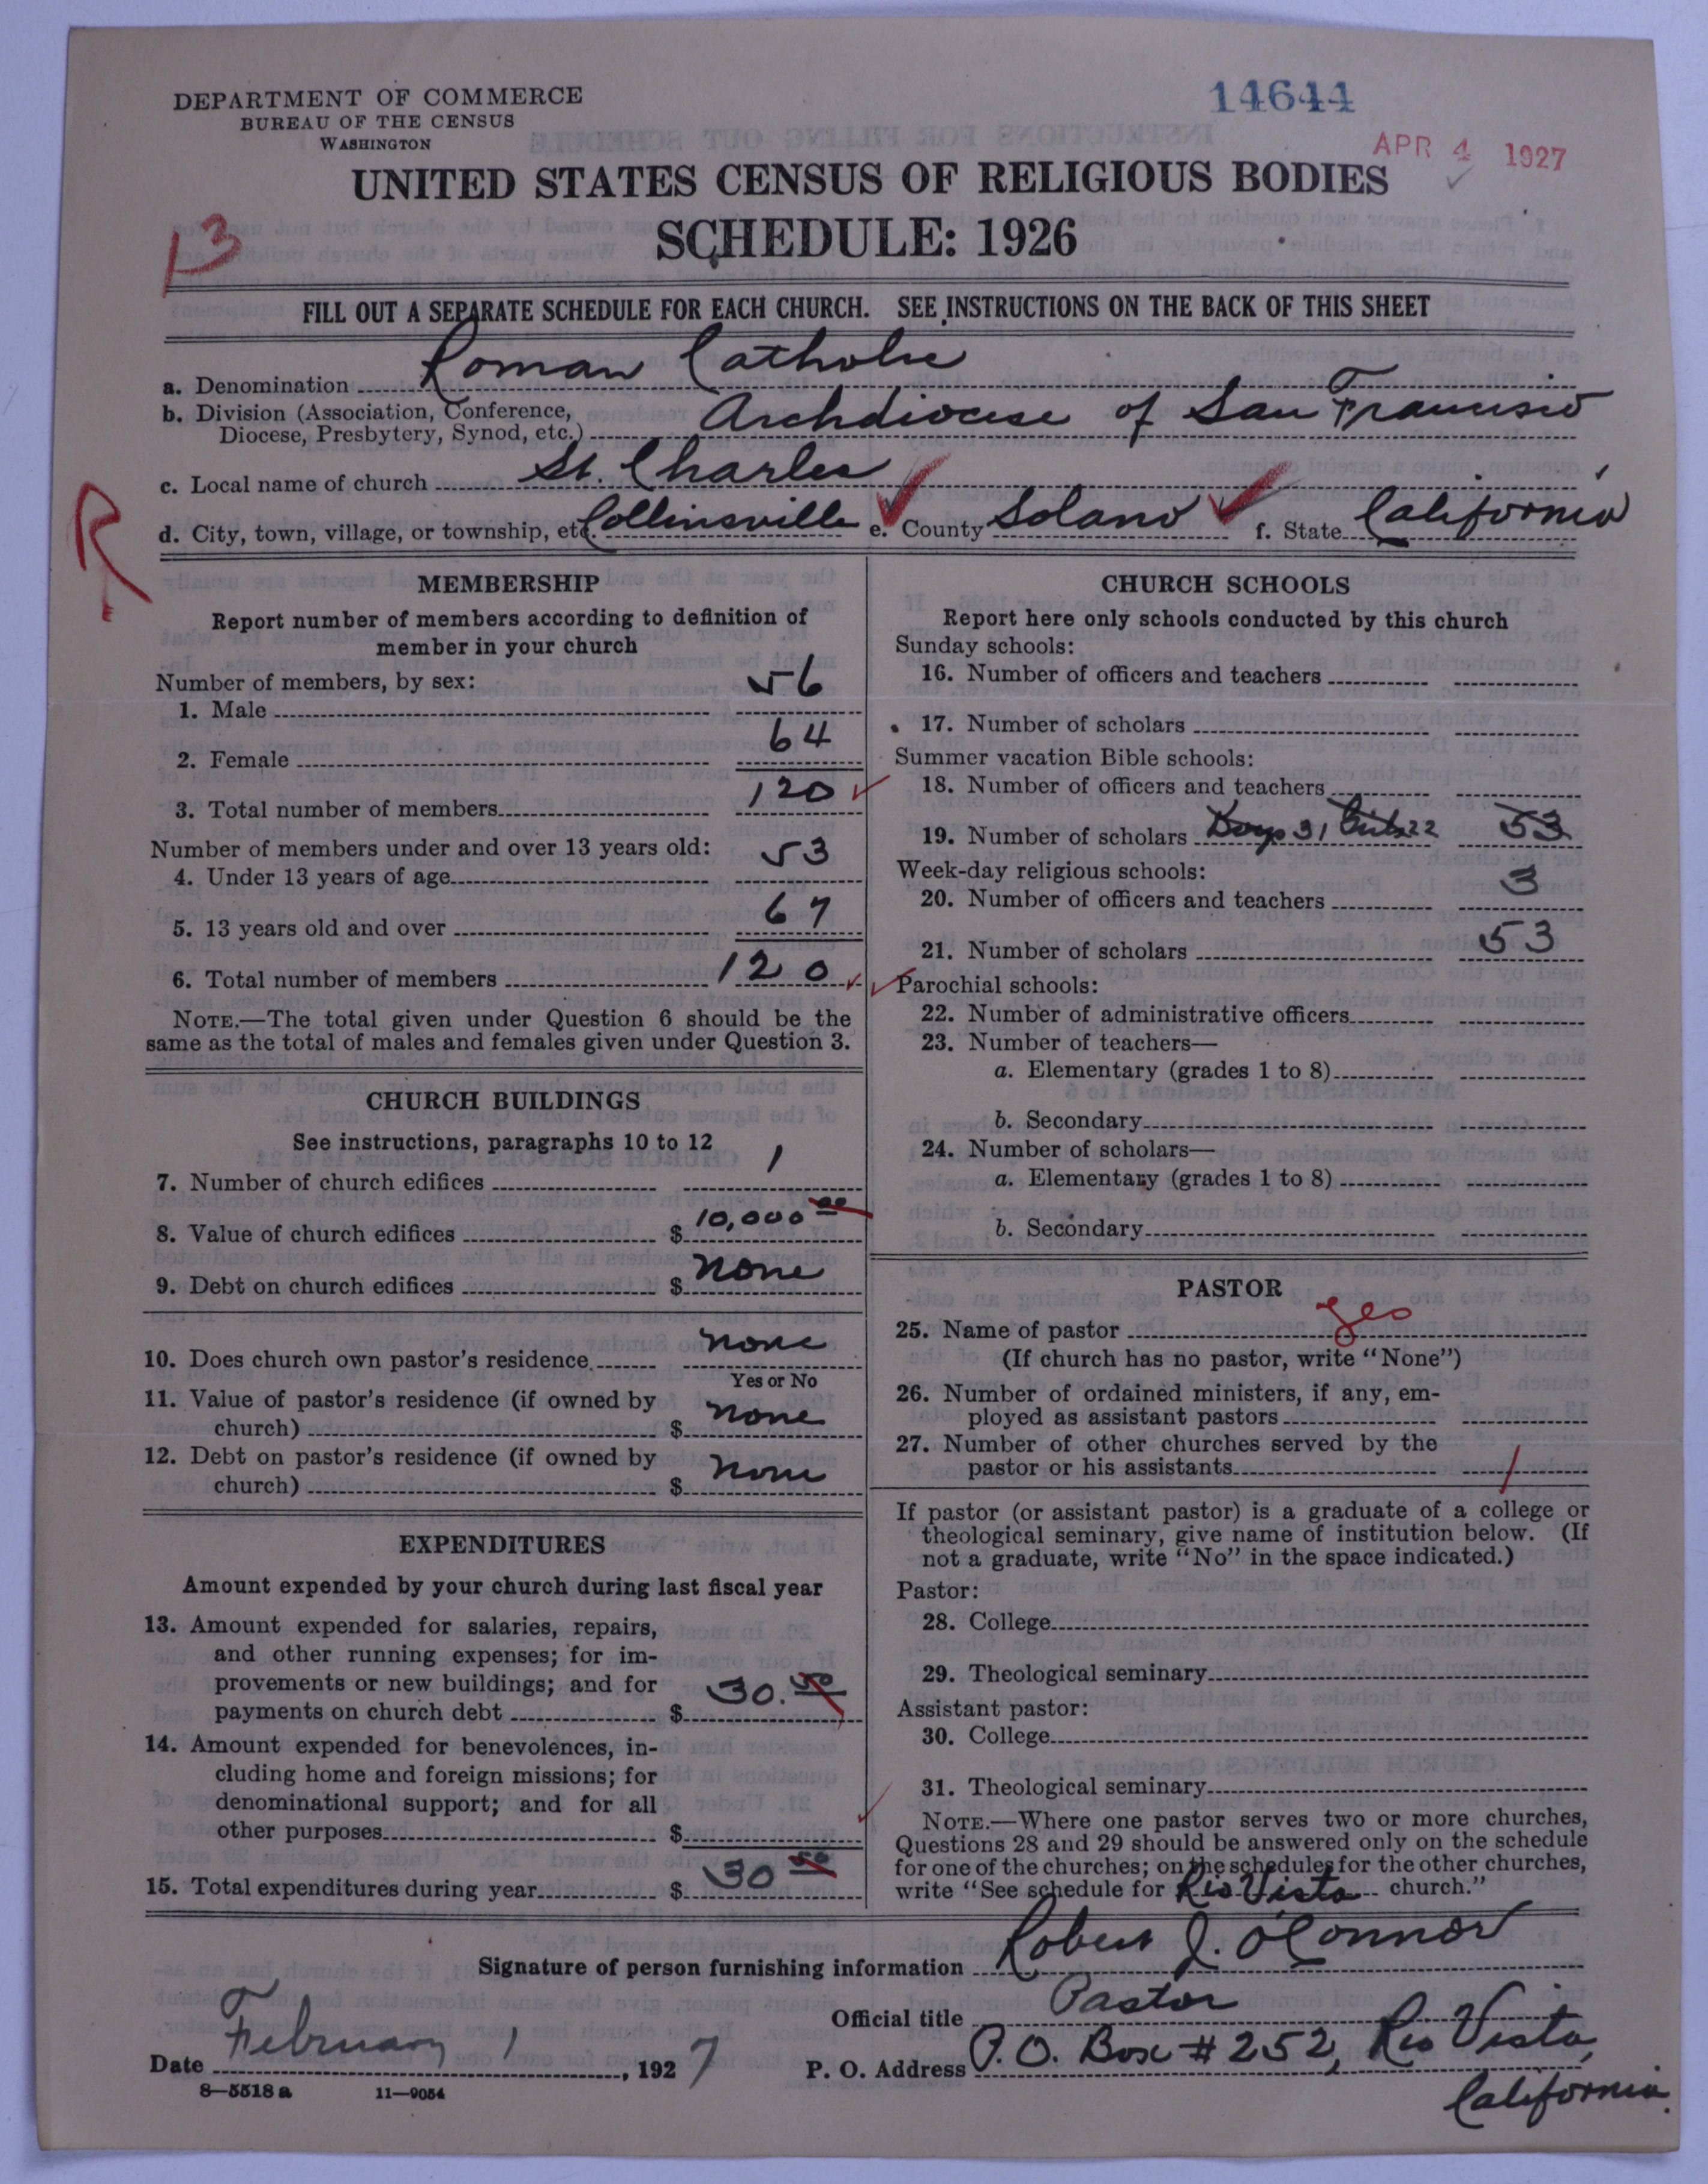 DEPARTMENT OF COMMERCE
BUREAU OF THE CENSUS
WASHINGTON
14644
APR 4 1927
UNITED STATES CENSUS OF RELIGIOUS BODIES
SCHEDULE: 1926
13
FILL OUT A SEPARATE SCHEDULE FOR EACH CHURCH. SEE INSTRUCTIONS ON THE BACK OF THIS SHEET
a. Denomination Roman Catholic
b. Division (Association, Conference,
Diocese, Presbytery, Synod, etc.) Archdiocese of San Francisco
c. Local name of church St. Charles
R
d. City, town, village, or township, etc. Collinsville e. County Solano f. State California
MEMBERSHIP
Report number of members according to definition of
member in your church
Number of members, by sex:
1. Male 56
2. Female 64
3. Total number of members 120
Number of members under and over 13 years old:
4. Under 13 years of age 53
5. 13 years old and over 67
6. Total number of members 120
NOTE.—The total given under Question 6 should be the
same as the total of males and females given under Question 3.
CHURCH BUILDINGS
See instructions, paragraphs 10 to 12
7. Number of church edifices 1
8. Value of church edifices $ 10,000 00
9. Debt on church edifices $ none
10. Does church own pastor's residence none
Yes or No
11. Value of pastor's residence (if owned by
church) $ none
12. Debt on pastor's residence (if owned by
church) $ none
EXPENDITURES
Amount expended by your church during last fiscal year
13. Amount expended for salaries, repairs,
and other running expenses; for im-
provements or new buildings; and for
payments on church debt $ 30.50
14. Amount expended for benevolences, in-
cluding home and foreign missions; for
denominational support; and for all
other purposes $
15. Total expenditures during year $ 30 50
CHURCH SCHOOLS
Report here only schools conducted by this church
Sunday schools:
16. Number of officers and teachers
17. Number of scholars
Summer vacation Bible schools:
18. Number of officers and teachers
19. Number of scholars Boys 31 Girls 22 53
Week-day religious schools:
20. Number of officers and teachers 3
21. Number of scholars 53
Parochial schools:
22. Number of administrative officers
23. Number of teachers—
a. Elementary (grades 1 to 8)
b. Secondary
24. Number of scholars—
a. Elementary (grades 1 to 8)
b. Secondary
PASTOR
25. Name of pastor yes
(If church has no pastor, write "None")
26. Number of ordained ministers, if any, em-
ployed as assistant pastors
27. Number of other churches served by the
pastor or his assistants 1
If pastor (or assistant pastor) is a graduate of a college or
theological seminary, give name of institution below. (If
not a graduate, write "No" in the space indicated.)
Pastor:
28. College
29. Theological seminary
Assistant pastor:
30. College
31. Theological seminary
NOTE.—Where one pastor serves two or more churches,
Questions 28 and 29 should be answered only on the schedule
for one of the churches; on the schedules for the other churches,
write "See schedule for Rio Vista church."
Signature of person furnishing information Robert J. O'Connor
Official title Pastor
Date February 1, 1927 P. O. Address P.O. Box #252, Rio Vista,
California.
8—5518 a 11—9054